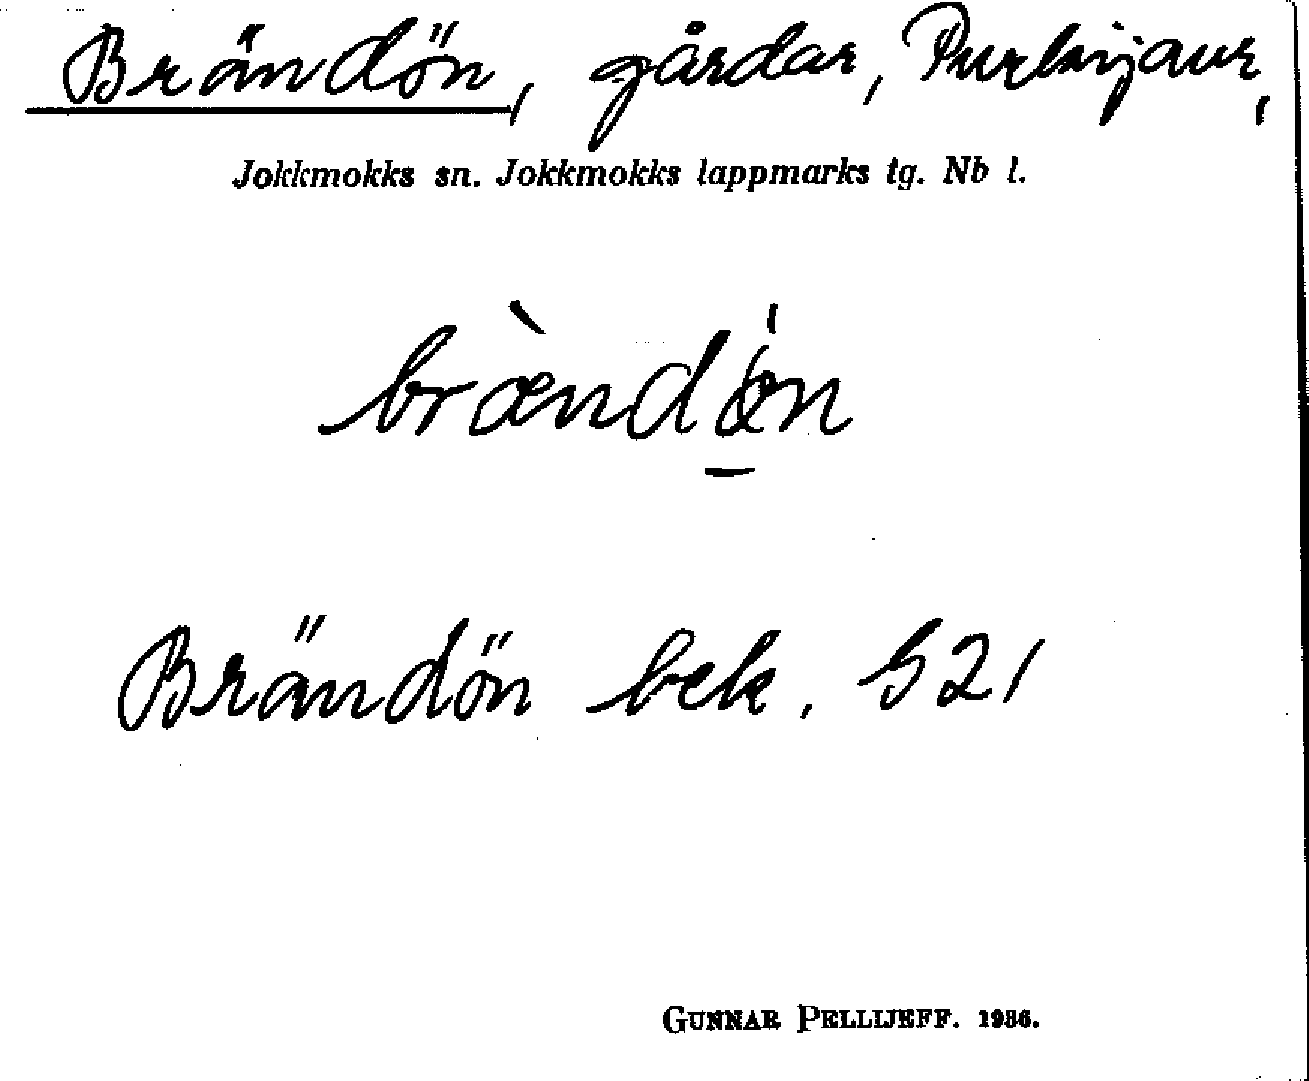 Brändön, gårdar, Purkijaur,
Jokkmokks sn. Jokkmokks lappmarks tg. Nb l.
Brändön bek. G21
GUNNAR PELLIJEFF. 1986.